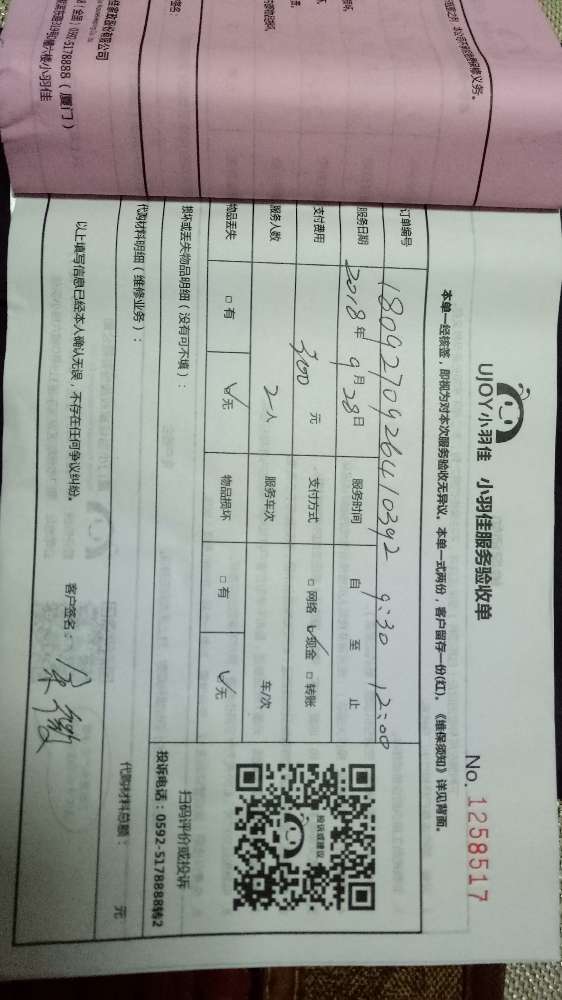 书之前，
修义务。
（全国）0592-5178888（厦门）
UJOY小羽佳 小羽佳服务验收单
No. 1258517
本单一经核签，即视为对本次服务验收无异议。本单一式两份，客户留存一份(红)。《维保须知》详见背面。
订单编号 180927092641 0392
服务日期 2018年9月28日 服务时间 自 9:30 至 12:00 止
支付费用 300 元 支付方式 □网络 ☑现金 □转账
服务人数 2人 服务车次 车/次
物品丢失 □有 ☑无 物品损坏 □有 ☑无
投诉或建议
扫码评价或投诉
投诉电话：0592-5178888转2
损坏或丢失物品明细（没有可不填）：
代购材料明细（维修业务）：
代购材料总额： 元
以上填写信息已经本人确认无误，不存在任何争议纠纷。
客户签名：